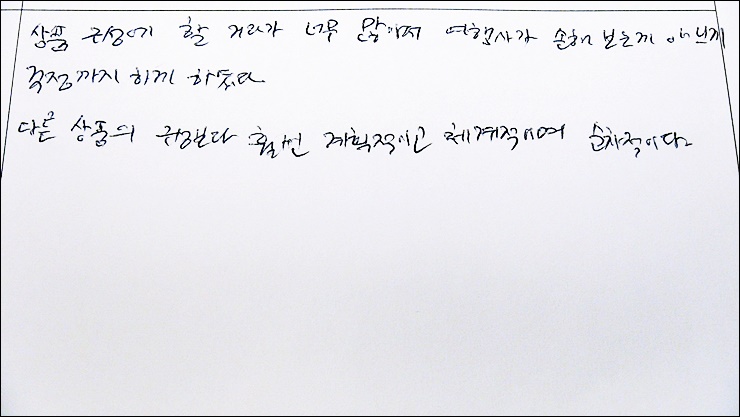 상품 구성에 할 거리가 너무 많아서 여행사가 손해 보는게 아닌지
걱정까지 하게 하였다
다른 상품의 구성보다 훨씬 계획적이고 체계적이며 순차적이다.